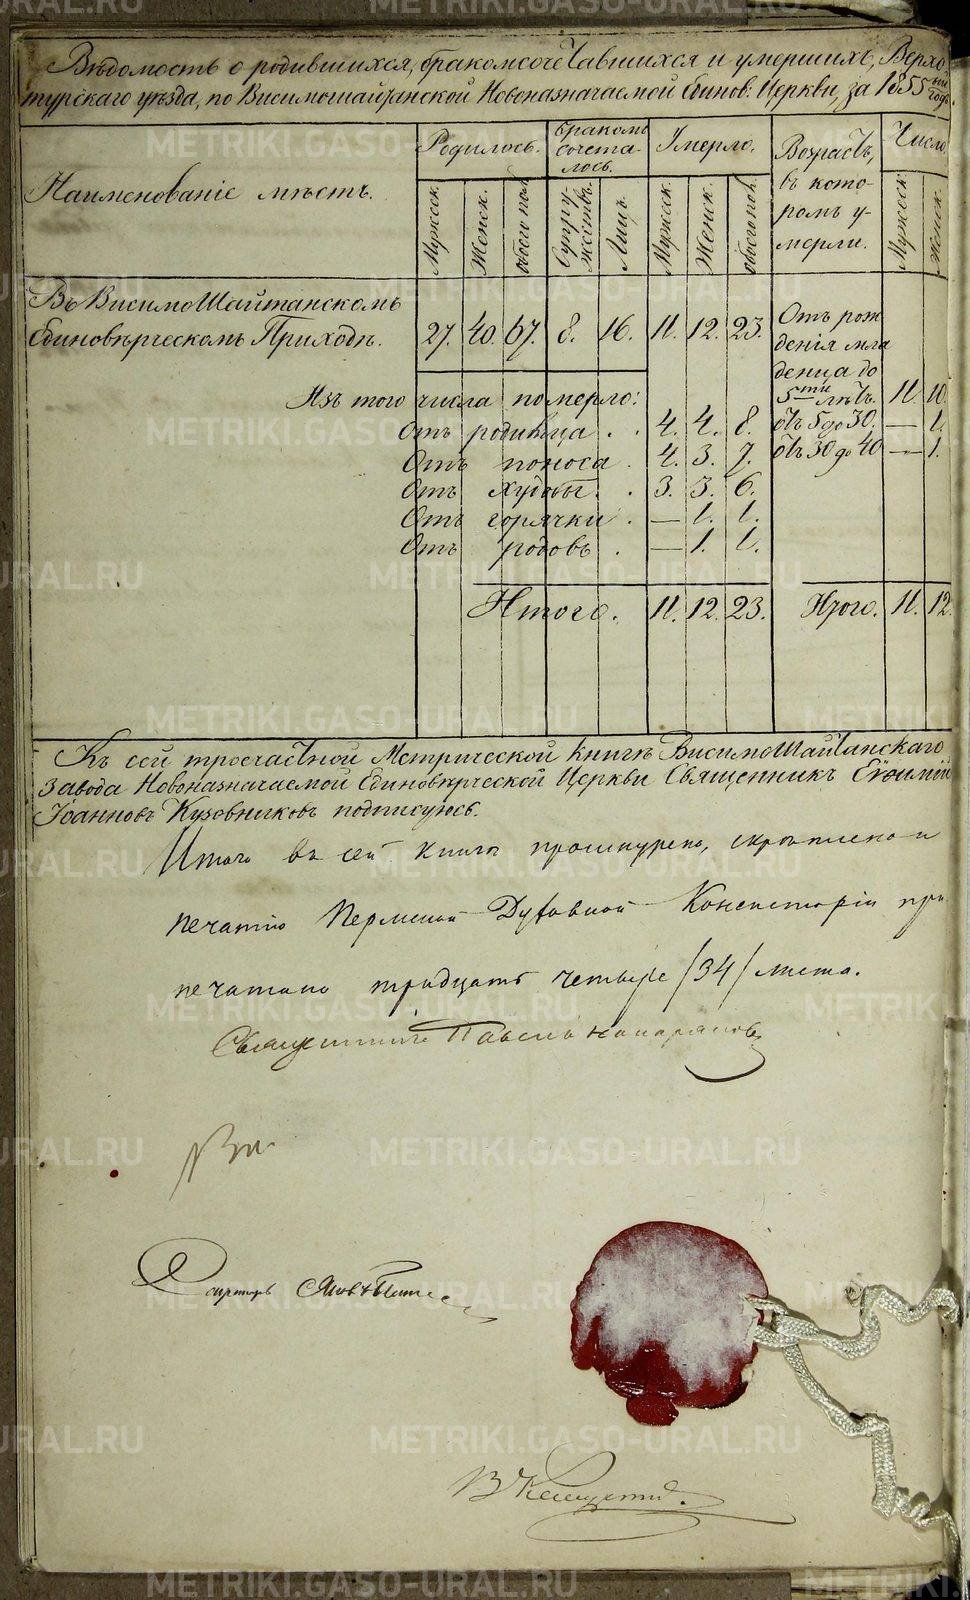 Вѣдомость о родившихся, бракомсочетавшихся и умершихъ, Верхо
турскаго уѣзда, по Висимошайтанской Новоназначаемой Единов: Церкви, за 1855ый годъ.
Наименованіе мѣстъ.
Родилось.
Бракомъ сочета-
лось.
Умерло.
Возрастъ,
въ кото-
ромъ у-
мерли.
Число
Мужеск.
Женск.
обоего пол.
Супру-
жествъ.
Лицъ.
Мужеск.
Женск.
обоего пол.
Мужеск.
Женск.
Въ ВисимоШайтанскомъ
Единовѣрческомъ Приходѣ. 27. 40. 67. 8. 16. 11. 12. 23.
Отъ рож
денія мла
денца до
5ти лѣтъ. 11. 10.
Изъ того числа померло:
Отъ родимца . . 4. 4. 8. отъ 5 до 30. — 1.
Отъ поноса . 4. 3. 7. отъ 30 до 40 — 1.
Отъ худобы . . 3. 3. 6.
Отъ горячки . — 1. 1.
Отъ родовъ . — 1. 1.
Итого. 11. 12. 23. Итого. 11. 12.
Къ сей троечастной Метрической книгѣ ВисимоШайтанскаго
Завода Новоназначаемой Единовѣрческой Церкви Священникъ Евѳимій
Іоанновъ Кузовниковъ подписуюсь.
Итого въ сей книгѣ прошнурено, скрѣплено и
печатію Пермской Духовной Консисторіи при
печатано тридцать четыре /34/ листа.
Священникъ Павелъ
METRIKI.GASO-URAL.RU